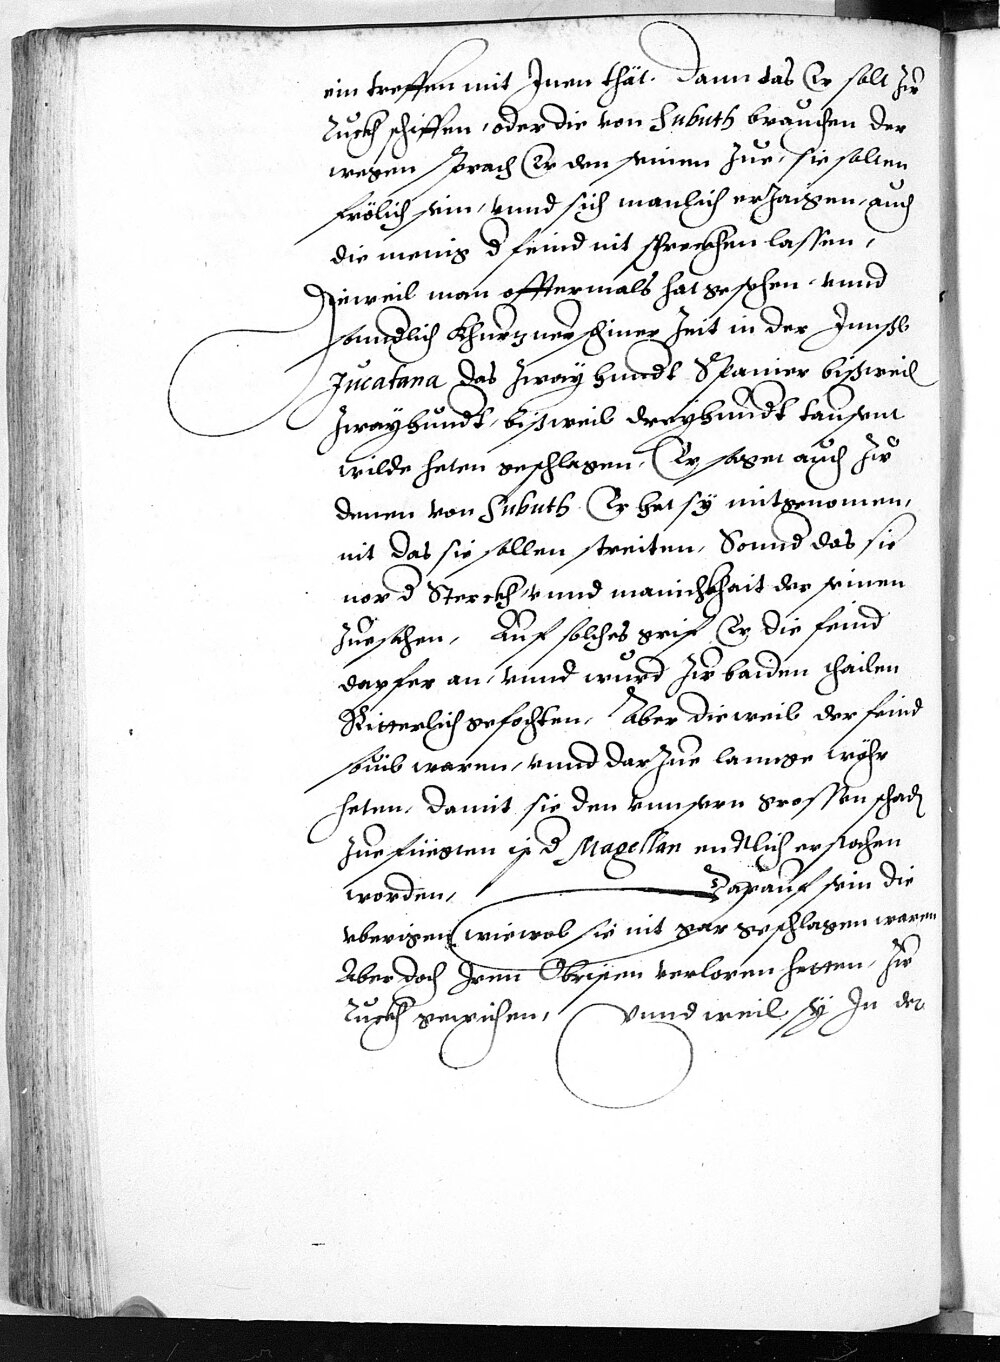 ein treffen mit Inen thät. Dann das Er solt Zů
Zuckh schiffen, oder die von Subuth brauchen der
wegen sprach Er den seinen Zue, sie solten
frölich sein, vnnd sich manlich erZaigen, auch
die menig d feind nit schreckhen lassen,
Dieweil man offtermals hat gesehen, vnnd
sundlich Khurz verschiner Zeit in der Innßl
Jucatana das Zway hundt Spanier bißweil
Zwayhundt, bißweil dreyhundt tausent
wilde heten geschlagen, Er saget auch Zů
denen von Subuth Er het sy mitgenomen,
nit das sie sollen streiten, Sonnd das sie
nor d Sterckh, vnnd manichkhait der seinen
Zuesehen, Auf solches grif Er die feind
dapfer an, vnnd wurd Zů baiden thailen
Ritterlich gefochten, Aber dieweil der feind
souil waren, vnnd darZue lannge wöhr
heten, damit sie den vnnsern grossen schadn
Zuefuegten ist d Magellan endtlich erstochen
worden, Darauf sein die
vberigen wiewol sie nit gar geschlagen waren
Aber doch Iren Obristen verloren hetten, Zů
Zuckh gewichen, Vnnd weil sy In der